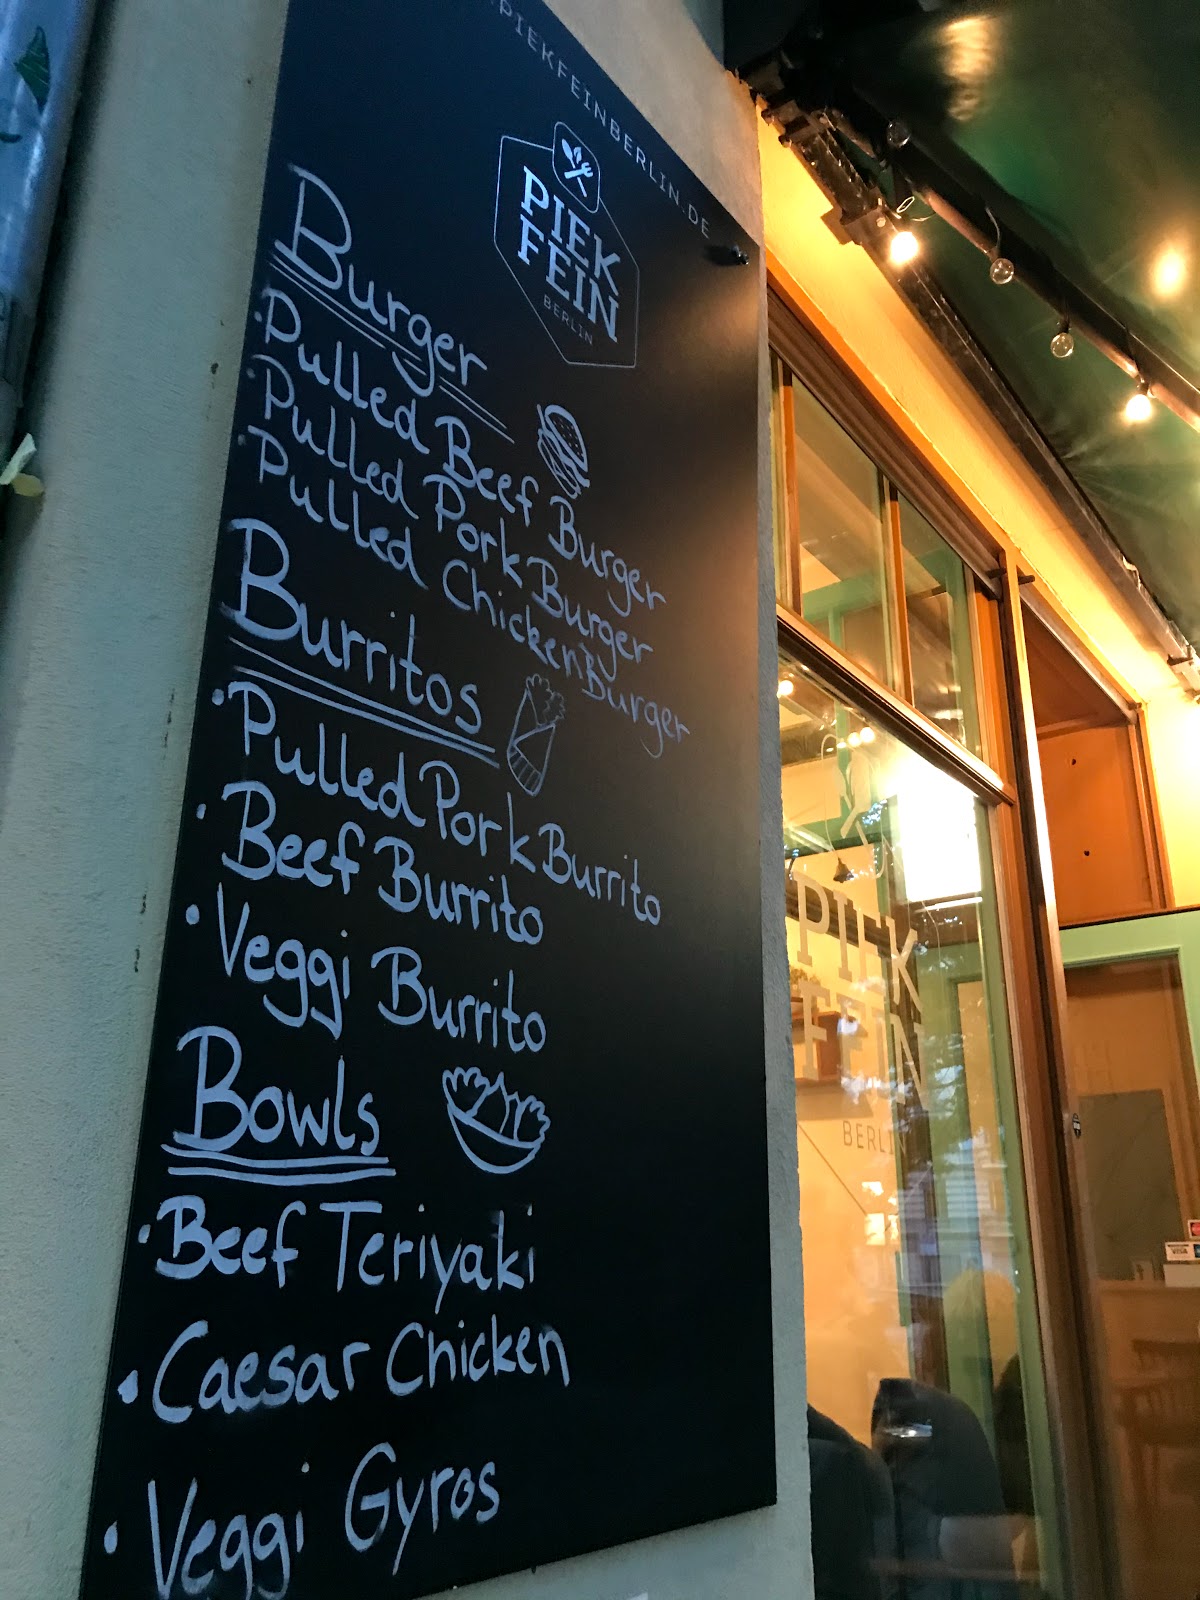 PIEKFEINBERLIN.DE
PIEK
FEIN
BERLIN
Burger
· Pulled Beef Burger
· Pulled Pork Burger
· Pulled Chicken Burger
Burritos
· Pulled Pork Burrito
· Beef Burrito
· Veggi Burrito
Bowls
· Beef Teriyaki
· Caesar Chicken
· Veggi Gyros
PIEK
FEIN
BERLIN